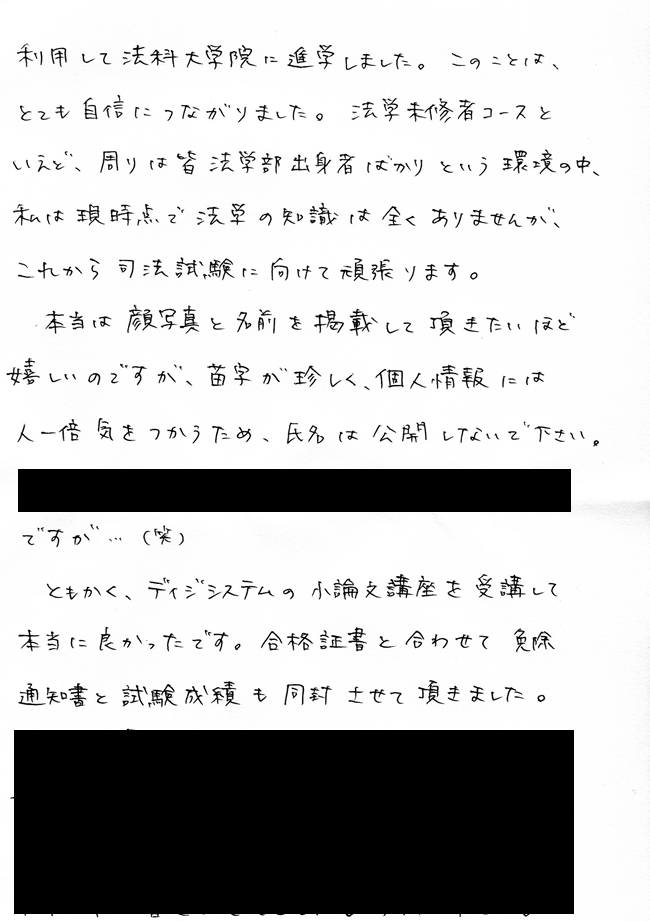 利用して法科大学院に進学しました。このことは、
とても自信につながりました。法学未修者コースと
いえど、周りは皆法学部出身者ばかりという環境の中、
私は現時点で法学の知識は全くありませんが、
これから司法試験に向けて頑張ります。
本当は顔写真と名前を掲載して頂きたいほど
嬉しいのですが、苗字が珍しく、個人情報には
人一倍気をつかうため、氏名は公開しないで下さい。
ですが…(笑)
ともかく、ディジシステムの小論文講座を受講して
本当に良かったです。合格証書と合わせて免除
通知書と試験成績も同封させて頂きました。